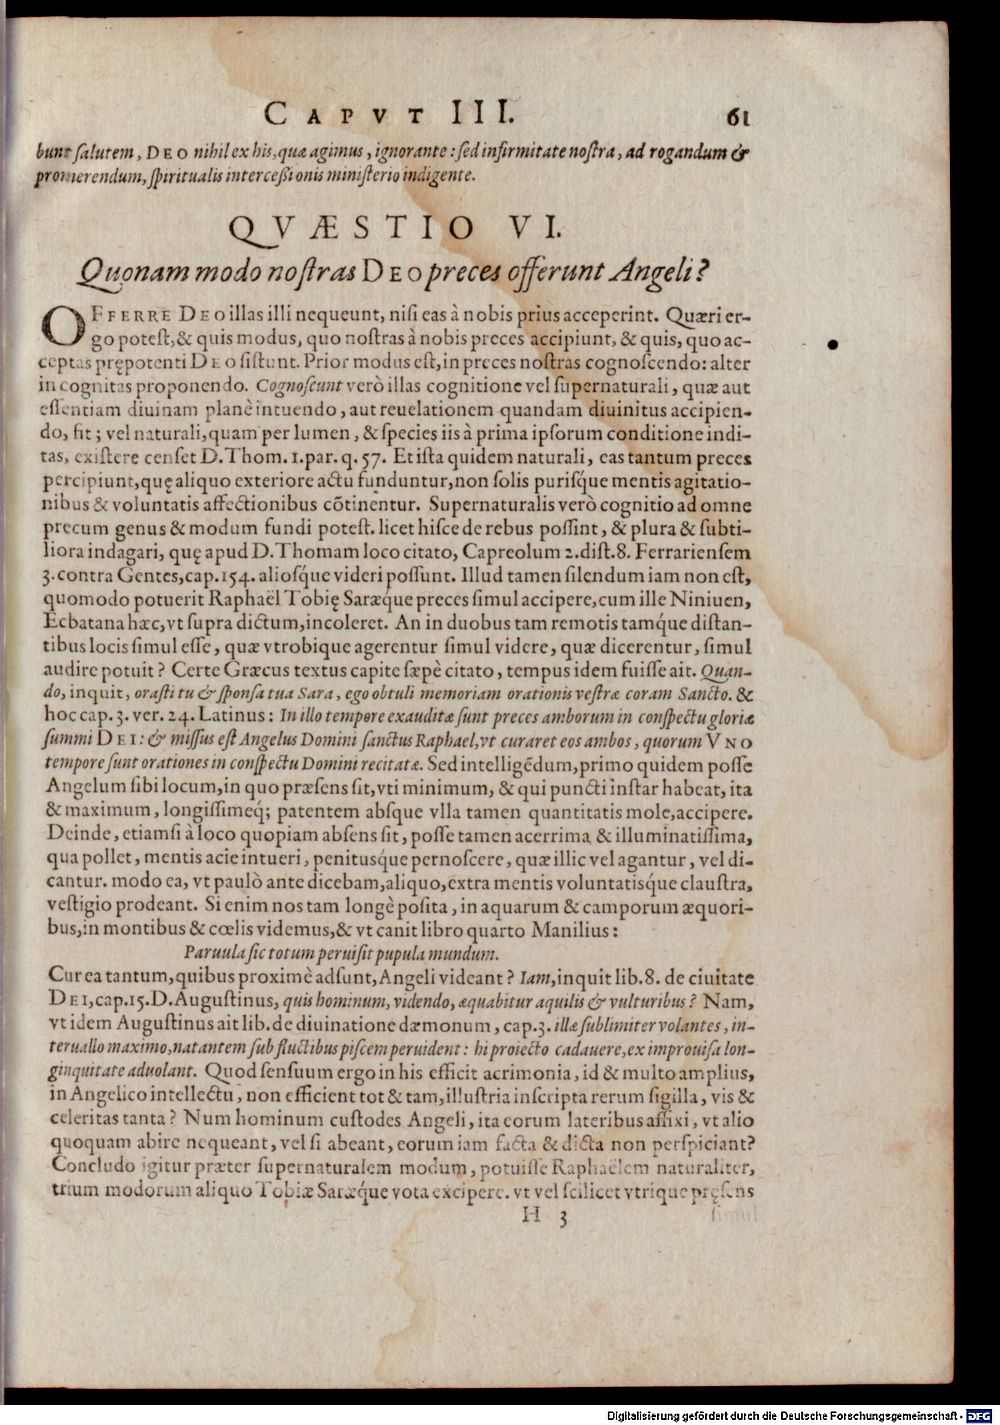 CAPVT III. 61
bunt salutem, DEO nihil ex his, quæ agimus, ignorante: sed infirmitate nostra, ad rogandum &
promerendum, spiritualis intercessionis ministerio indigente.
QVÆSTIO VI.
Quonam modo nostras DEO preces offerunt Angeli?
OFFERRE DEO illas illi nequeunt, nisi eas à nobis prius acceperint. Quæri er-
go potest, & quis modus, quo nostras à nobis preces accipiunt, & quis, quo ac-
ceptas prępotenti DEO sistunt. Prior modus est, in preces nostras cognoscendo: alter
in cognitas proponendo. Cognoscunt verò illas cognitione vel supernaturali, quæ aut
essentiam diuinam planè intuendo, aut reuelationem quandam diuinitus accipien-
do, fit; vel naturali, quam per lumen, & species iis à prima ipsorum conditione indi-
tas, existere censet D. Thom. 1. par. q. 57. Et ista quidem naturali, eas tantum preces
percipiunt, quę aliquo exteriore actu funduntur, non solis purisq́ue mentis agitatio-
nibus & voluntatis affectionibus cõtinentur. Supernaturalis verò cognitio ad omne
precum genus & modum fundi potest. licet hisce de rebus possint, & plura & subti-
liora indagari, quę apud D. Thomam loco citato, Capreolum 2. dist. 8. Ferrariensem
3. contra Gentes, cap. 154. aliosq́ue videri possunt. Illud tamen silendum iam non est,
quomodo potuerit Raphaël Tobię Saræq́ue preces simul accipere, cum ille Niniuen,
Ecbatana hæc, vt supra dictum, incoleret. An in duobus tam remotis tamq́ue distan-
tibus locis simul esse, quæ vtrobique agerentur simul videre, quæ dicerentur, simul
audire potuit? Certe Græcus textus capite sæpè citato, tempus idem fuisse ait. Quan-
do, inquit, orasti tu & sponsa tua Sara, ego obtuli memoriam orationis vestræ coram Sancto. &
hoc cap. 3. ver. 24. Latinus: In illo tempore exauditæ sunt preces amborum in conspectu gloriæ
summi DEI: & missus est Angelus Domini sanctus Raphael, vt curaret eos ambos, quorum VNO
tempore sunt orationes in conspectu Domini recitatæ. Sed intelligēdum, primo quidem posse
Angelum sibi locum, in quo præsens sit, vti minimum, & qui puncti instar habeat, ita
& maximum, longissimeq́; patentem absque vlla tamen quantitatis mole, accipere.
Deinde, etiamsi à loco quopiam absens sit, posse tamen acerrima & illuminatissima,
qua pollet, mentis acie intueri, penitusq́ue pernoscere, quæ illic vel agantur, vel di-
cantur. modo ea, vt paulò ante dicebam, aliquo, extra mentis voluntatisq́ue claustra,
vestigio prodeant. Si enim nos tam longè posita, in aquarum & camporum æquori-
bus, in montibus & cœlis videmus, & vt canit libro quarto Manilius:
Paruula sic totum peruisit pupula mundum.
Cur ea tantum, quibus proximè adsunt, Angeli videant? Iam, inquit lib. 8. de ciuitate
DEI, cap. 15. D. Augustinus, quis hominum, videndo, æquabitur aquilis & vulturibus? Nam,
vt idem Augustinus ait lib. de diuinatione dæmonum, cap. 3. illæ sublimiter volantes, in-
teruallo maximo, natantem sub fluctibus piscem peruident: hi proiecto cadauere, ex improuisa lon-
ginquitate aduolant. Quod sensuum ergo in his efficit acrimonia, id & multo amplius,
in Angelico intellectu, non efficient tot & tam, illustria inscripta rerum sigilla, vis &
celeritas tanta? Num hominum custodes Angeli, ita eorum lateribus affixi, vt alio
quoquam abire nequeant, vel si abeant, eorum iam facta & dicta non perspiciant?
Concludo igitur præter supernaturalem modum, potuisse Raphaëlem naturaliter,
trium modorum aliquo Tobiæ Saræq́ue vota excipere. vt vel scilicet vtrique pręsens
H 3 simul
Digitalisierung gefördert durch die Deutsche Forschungsgemeinschaft - DFG